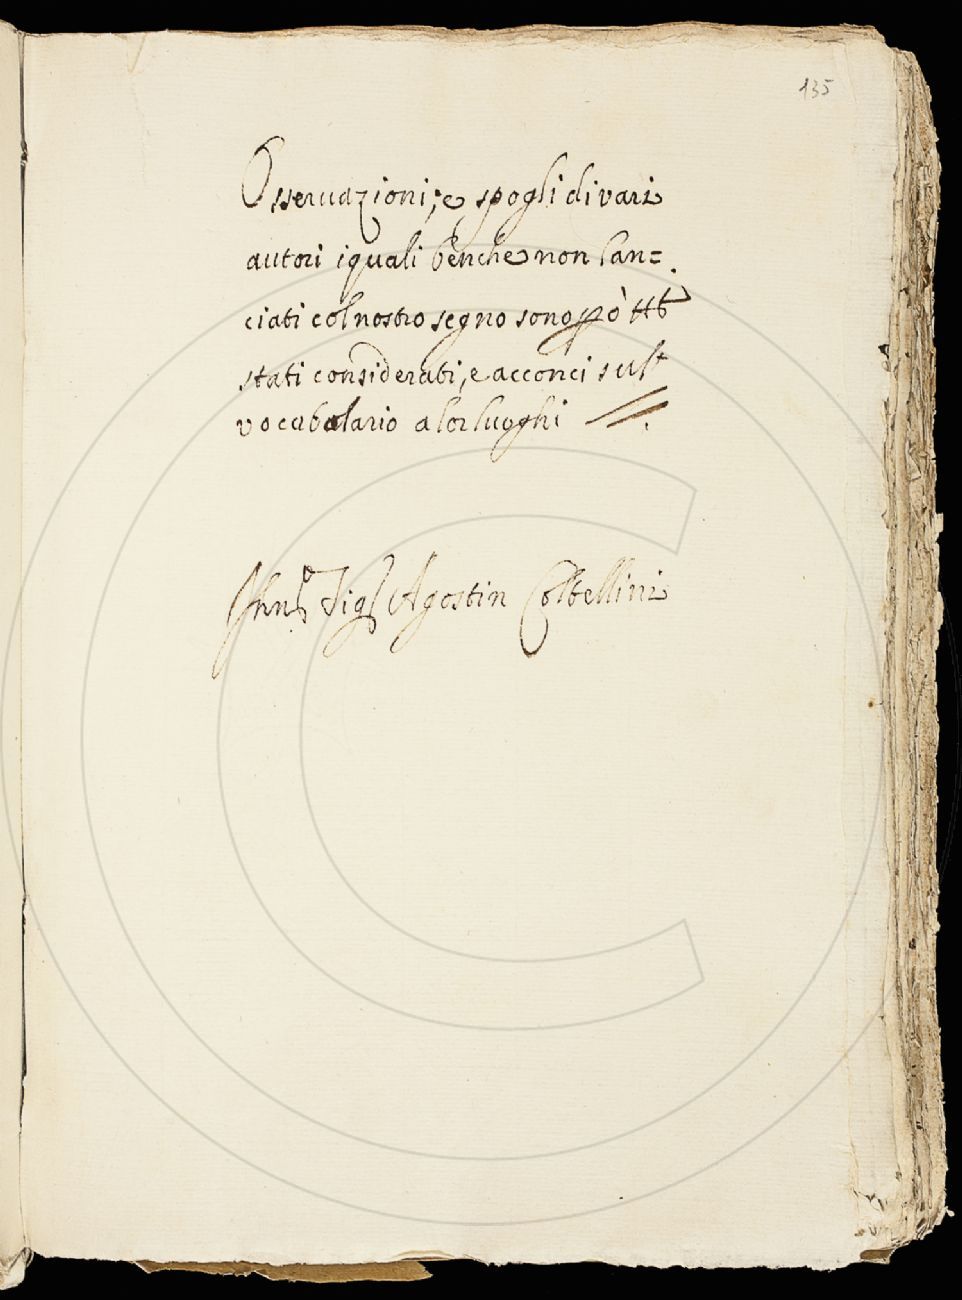 135
Osseruazioni, e spogli di vari
autori i quali benche non lan=
ciati col nostro segno sono però tt.i
stati considerati, e acconci sul
vocabolario a lor luoghi
Sig.r Agostin Coltellini